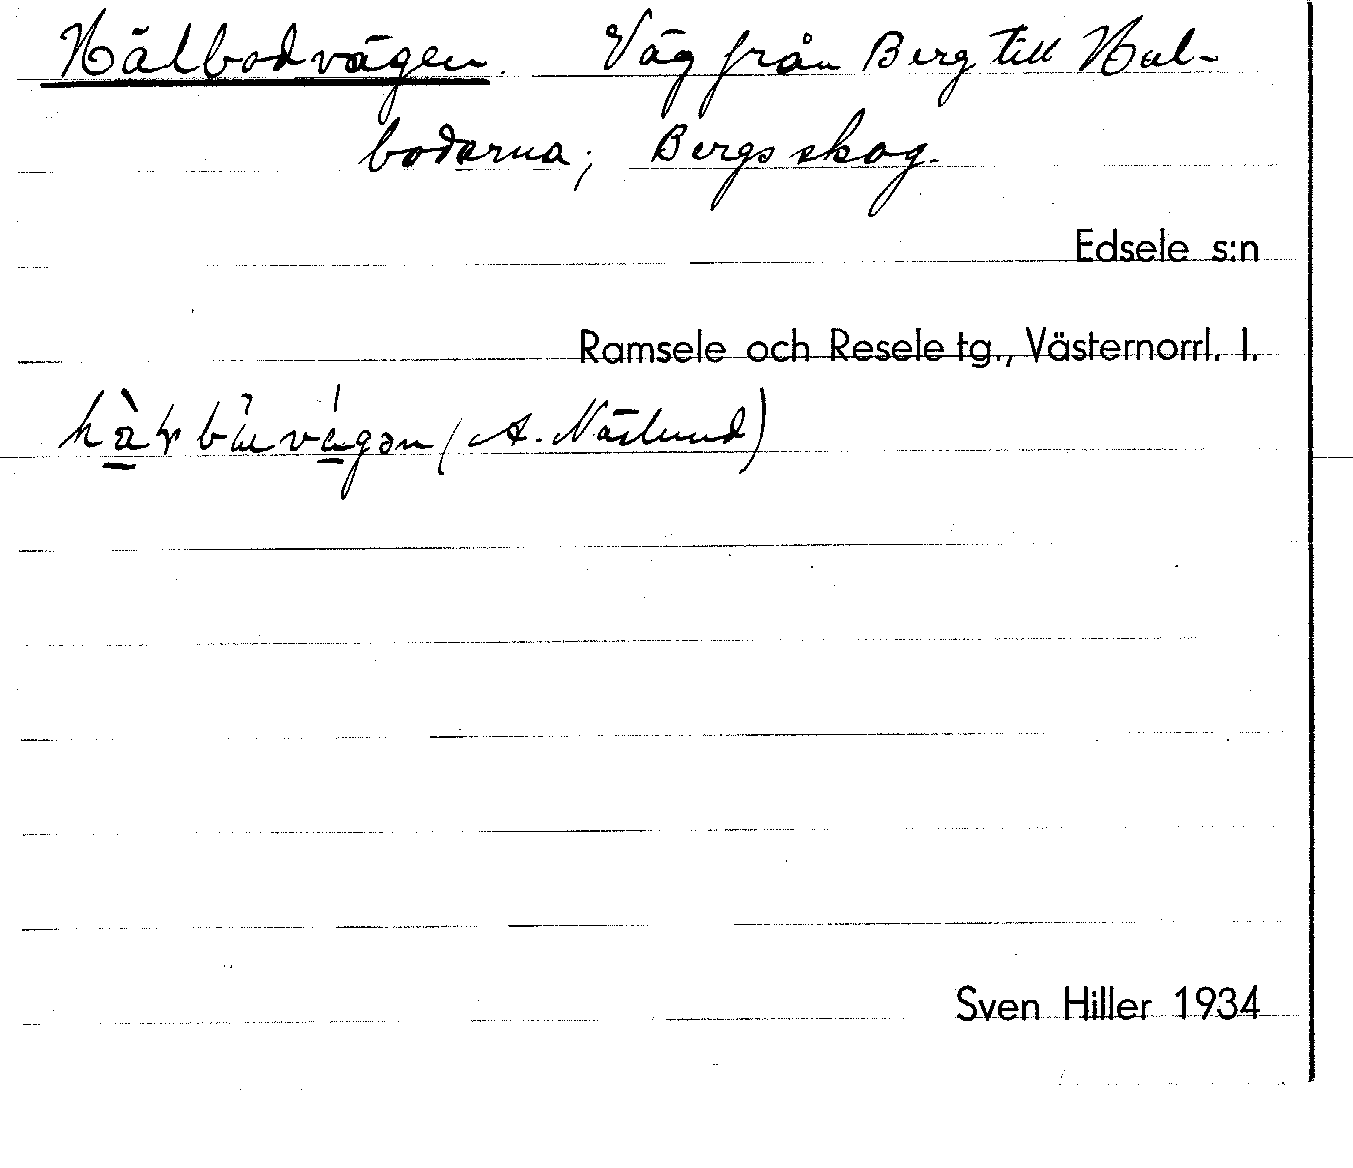 Hälbodvägen. Väg från Berg till Häl-
bodarna; Bergs skog.
Edsele s:n
Ramsele och Resele tg., Västernorrl. l.
(A. Näslund)
Sven Hiller 1934